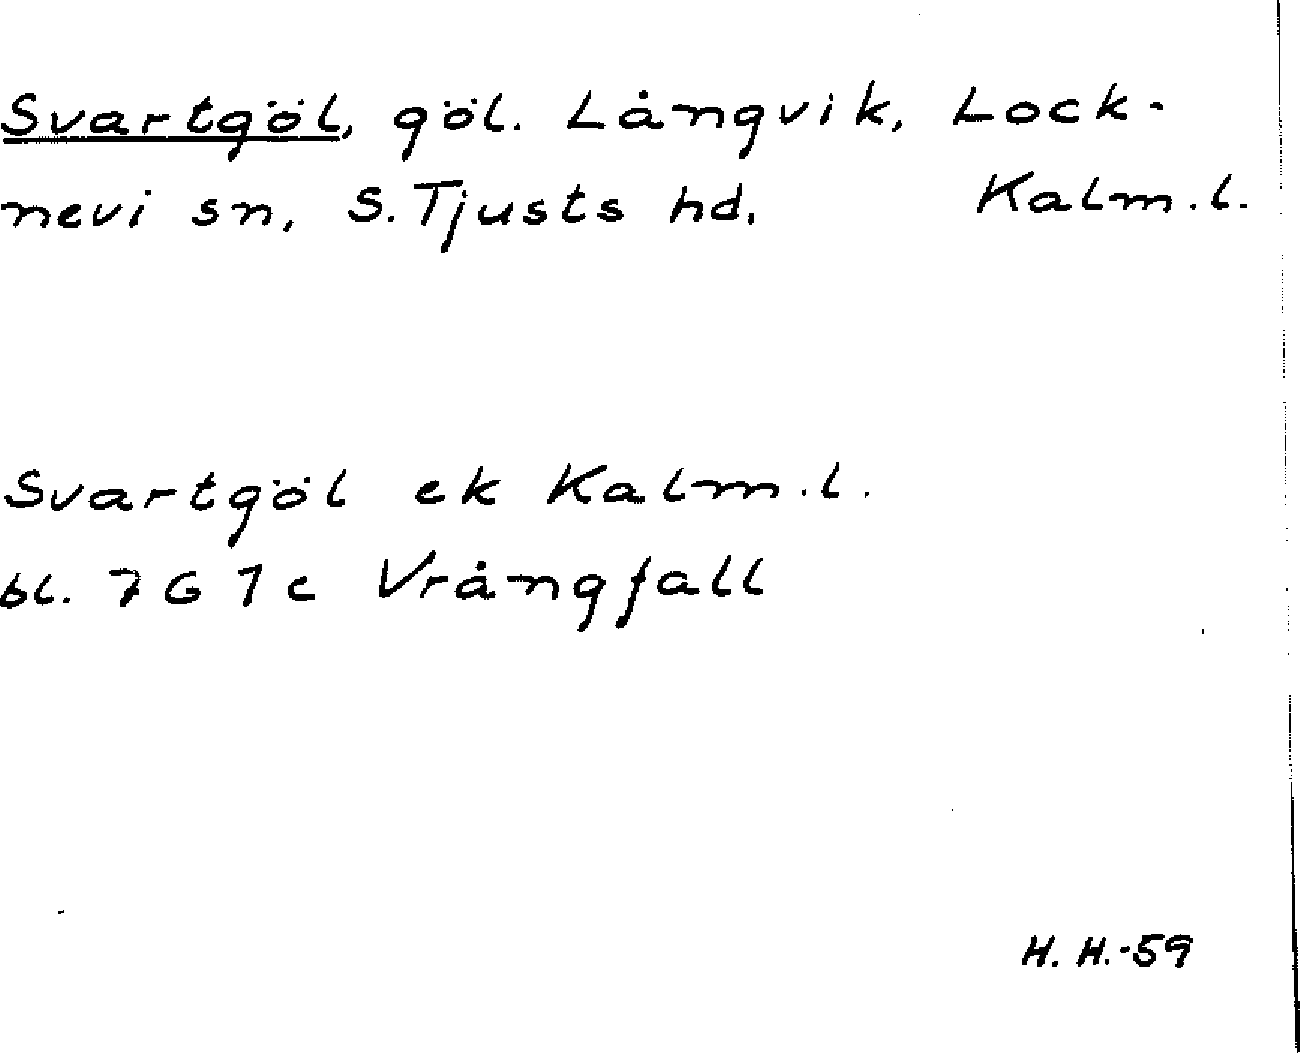 Svartgöl, göl. Långvik, Lock-
nevi sn, S. Tjusts hd, Kalm. l.
Svartgöl ek Kalm. l.
bl. 7 G 7 c Vrångfall
H. H.-59